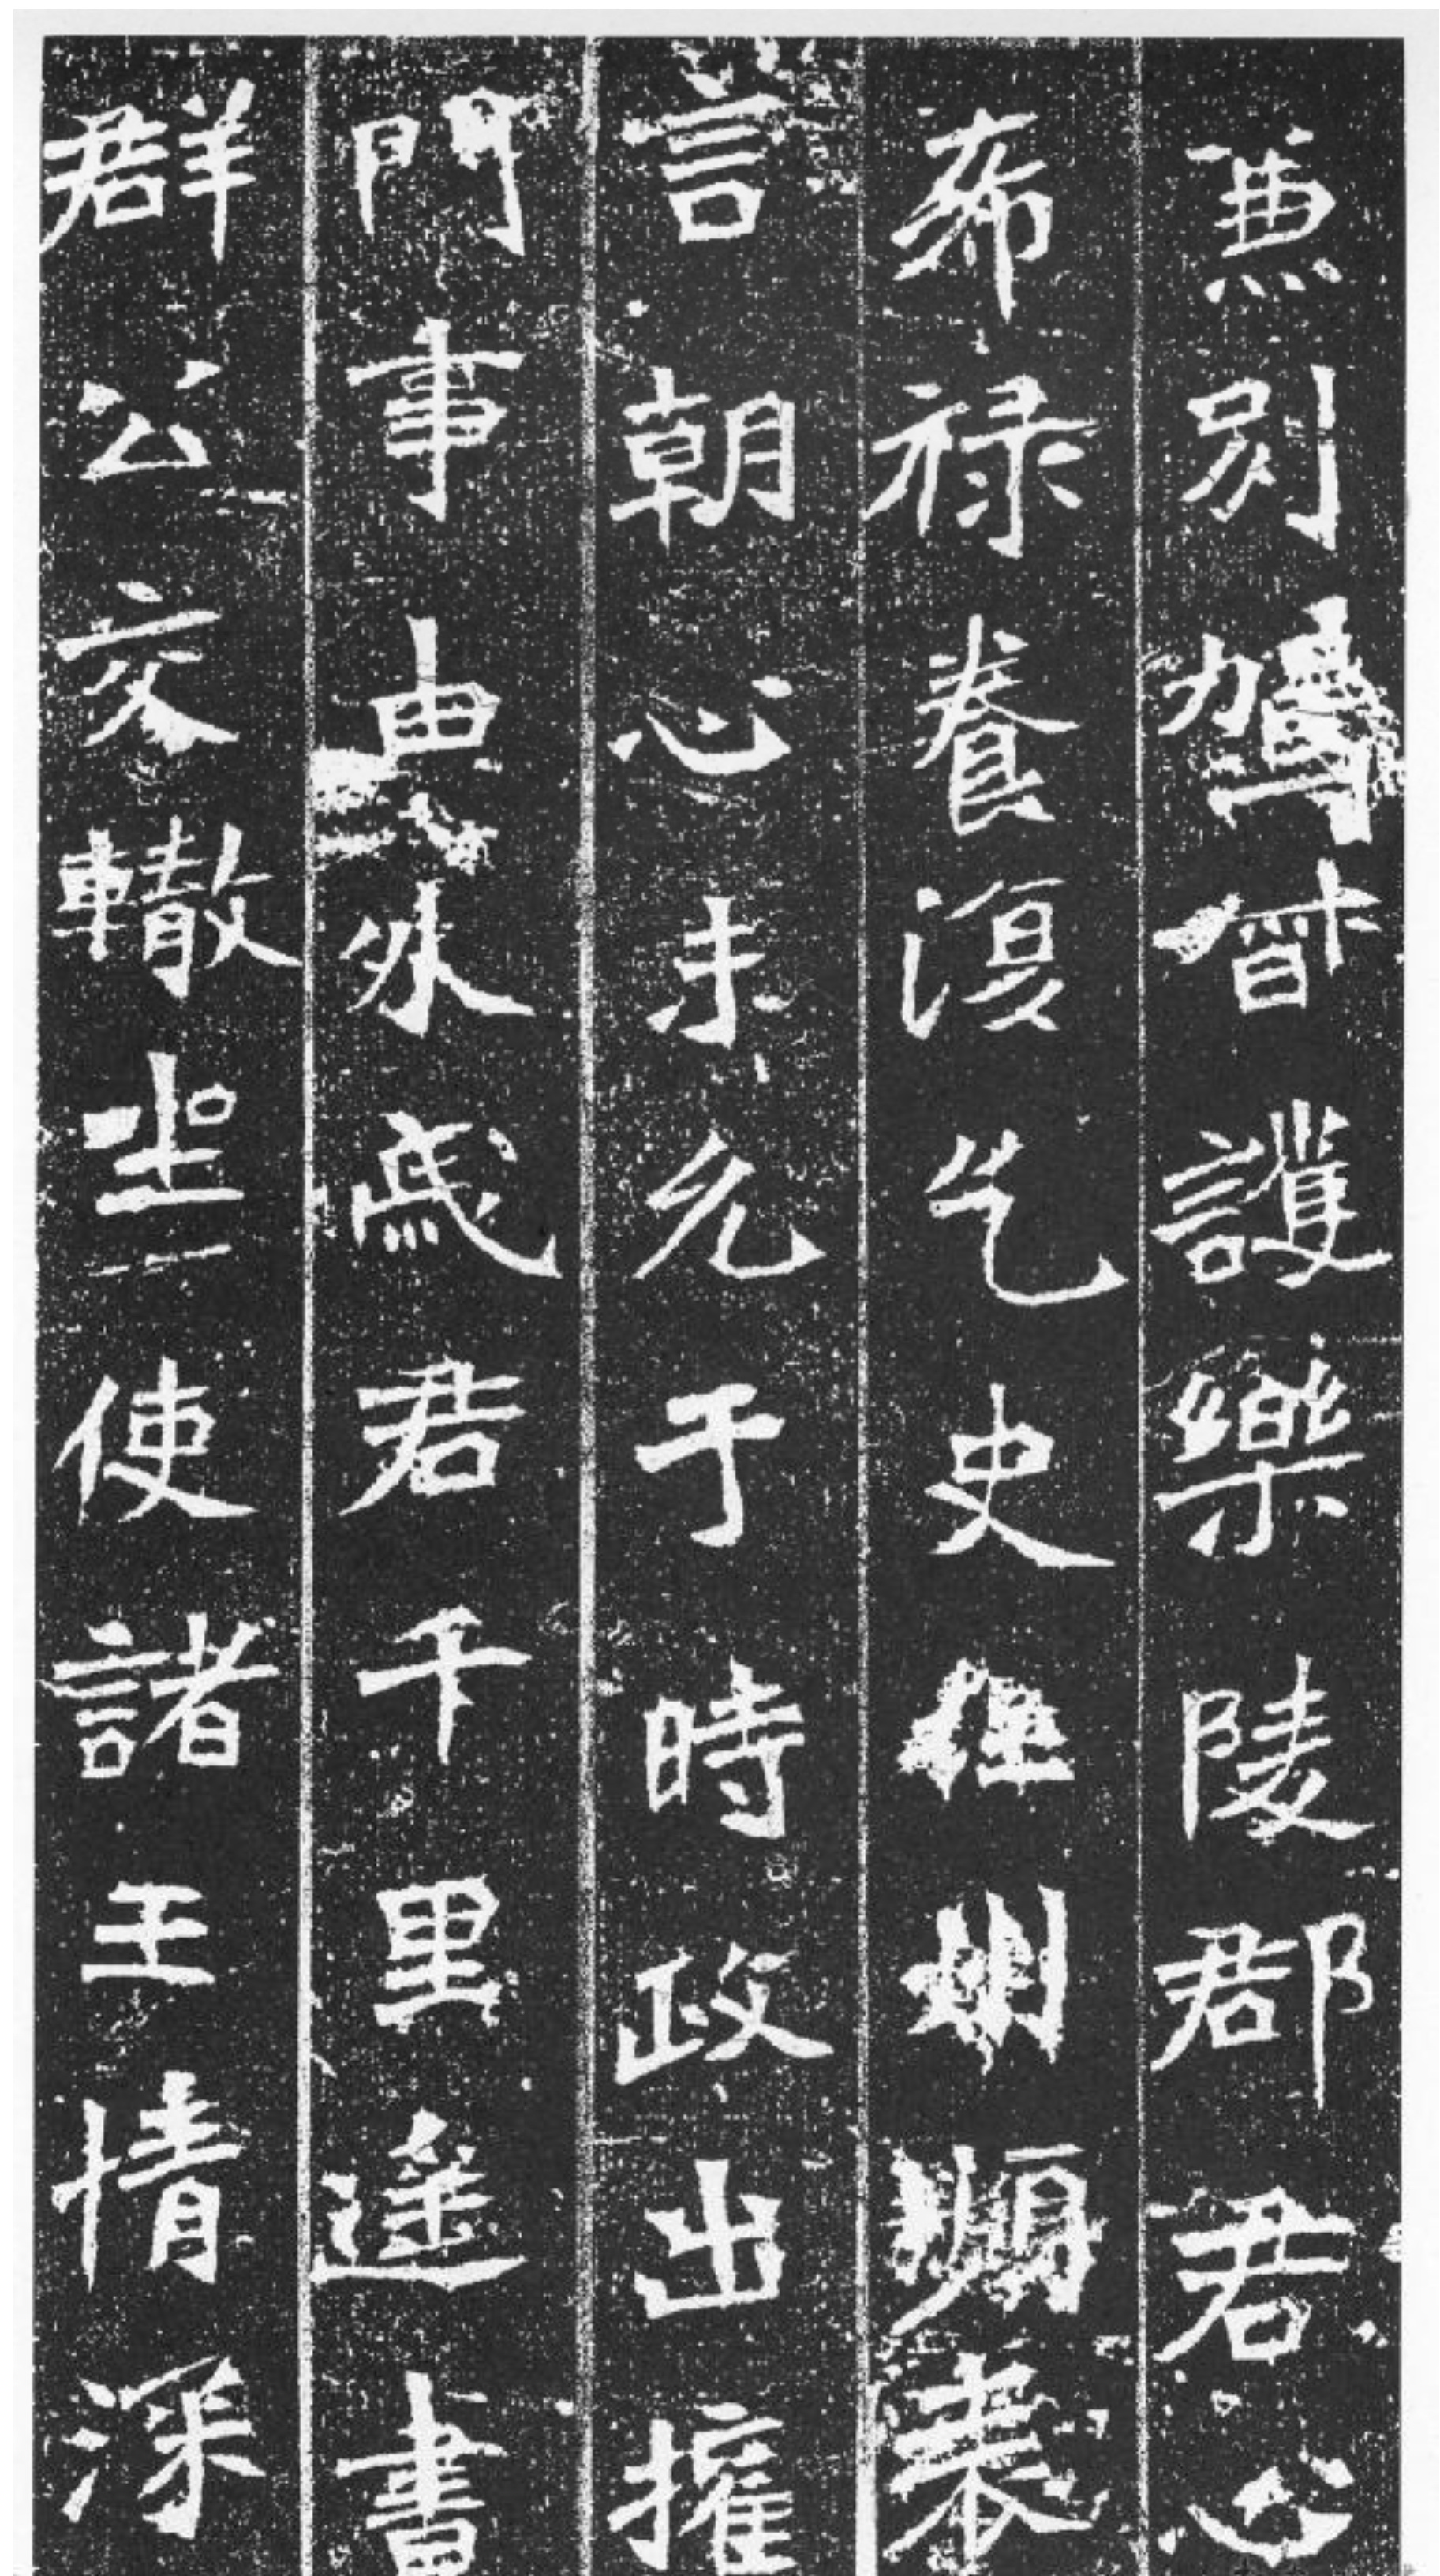 兼別駕督護樂陵郡君心
希祿養復乞史任州頻表
言朝心未允于時政出權
門事由外戚君千里遙書
群公交轍坐使諸王情深